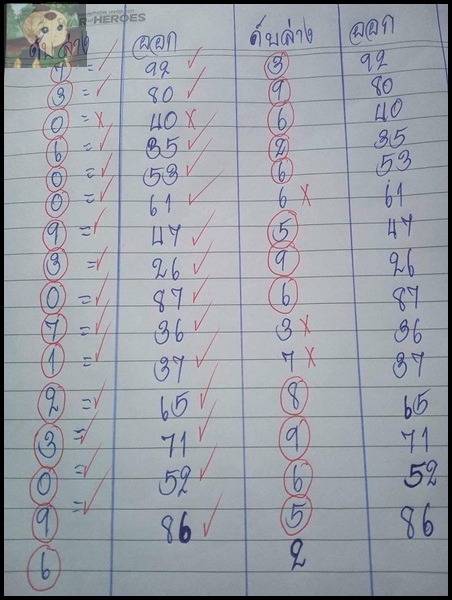 R-HEROES
ดับล่าง ออก ดับล่าง ออก
7 = ✓ 92 ✓ 3 92
3 = ✓ 80 ✓ 9 80
0 = x 40 x 6 40
6 = ✓ 35 ✓ 2 35
0 = ✓ 53 ✓ 6 53
0 = ✓ 61 ✓ 6 x 61
9 = ✓ 47 ✓ 5 47
3 = ✓ 26 ✓ 9 26
0 = ✓ 87 ✓ 6 87
7 = ✓ 36 ✓ 3 x 36
1 = ✓ 37 ✓ 7 x 37
2 = ✓ 65 ✓ 8 65
3 = ✓ 71 ✓ 9 71
0 = ✓ 52 ✓ 6 52
9 = ✓ 86 ✓ 5 86
6 2